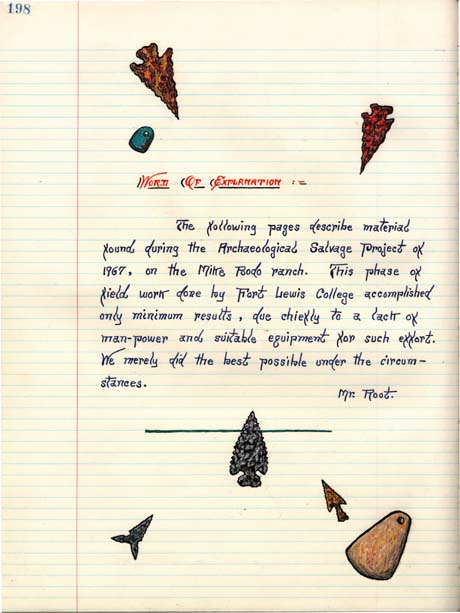 198
Word Of Explanation :=
The following pages describe material
found during the Archaeological Salvage Project of
1967, on the Mike Bodo ranch. This phase of
field work done by Fort Lewis College accomplished
only minimum results, due chiefly to a lack of
man-power and suitable equipment for such effort.
We merely did the best possible under the circum-
stances.
Mr. Root.